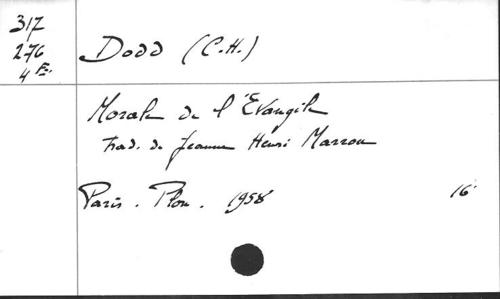 317
276
4º Fr.
Dodd (C.H.)
Morale de l'Évangile
trad. de Jeanne Henri Marrou
Paris. Plon. 1958 16º